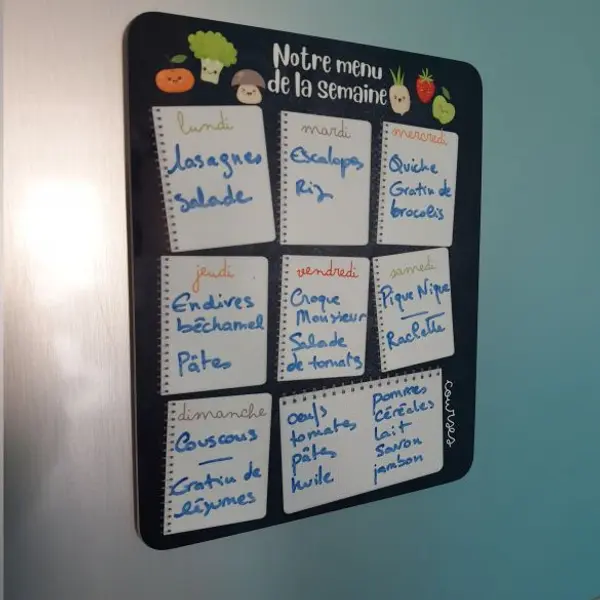 Notre menu
de la semaine
lundi
lasagnes
salade
mardi
Escalopes
Riz
mercredi
Quiche
Gratin de
brocolis
jeudi
Endives
béchamel
Pâtes
vendredi
Croque
Monsieur
Salade
de tomates
samedi
Pique Nique
Raclette
dimanche
Couscous
Gratin de
légumes
courses
oeufs
tomates
pâtes
huile
pommes
céréales
lait
savon
jambon